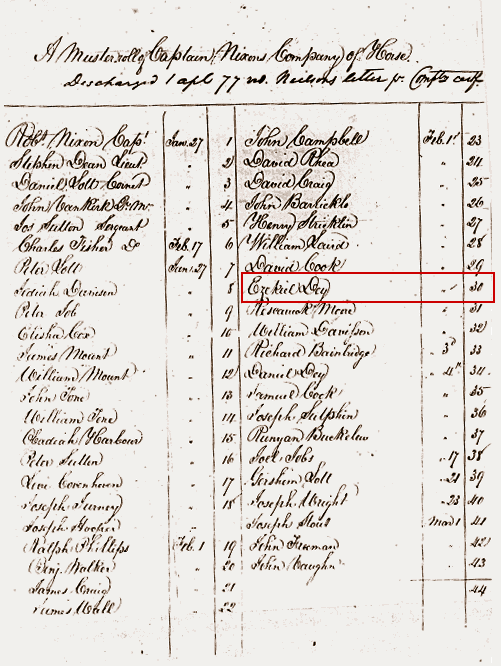 A Muster roll of Captain Nixons Company of Horse.
Discharged 1 apl 77 letter
Robt Nixon Capt Jan. 27 1
Stephen Dean Lieut " 2
Daniel Lott Cornet " 3
John VanKirk Qr. Mr. " 4
Jos Sutton Sergeant " 5
Charles Fisher Do Feb. 17 6
Peter Lott Jan. 27 7
Jediah Davison " 8
Peter Job " 9
Elisha Cox " 10
James Mount " 11
William Mount " 12
John Tone " 13
William Tone " 14
Obadiah Harbour " 15
Peter Sutten " 16
Levi Covenhoven " 17
Joseph Turney " 18
Joseph Hooper "
Ralph Phillips Feb. 1 19
Benj. Walker " 20
James Craig " 21
James Wall " 22
John Campbell Feb. 1st 23
David Rhea " 24
David Craig " 25
John Barlickle " 26
Henry Stricklin " 27
William Laird " 28
David Cook " 29
Ezekiel Dey " 30
Mone " 31
William Davison " 32
Richard Bainbridge " 3d 33
Daniel Dey " 4th 34
Samuel Cook " 35
Joseph Sulphin " 36
Runyan Buckelew " 37
Joel Jobs " 17 38
Gershem Lott " 21 39
Joseph Wright " 23 40
Joseph Stout Mar 1 41
John Freeman " 42
John Vaughn " 43
44